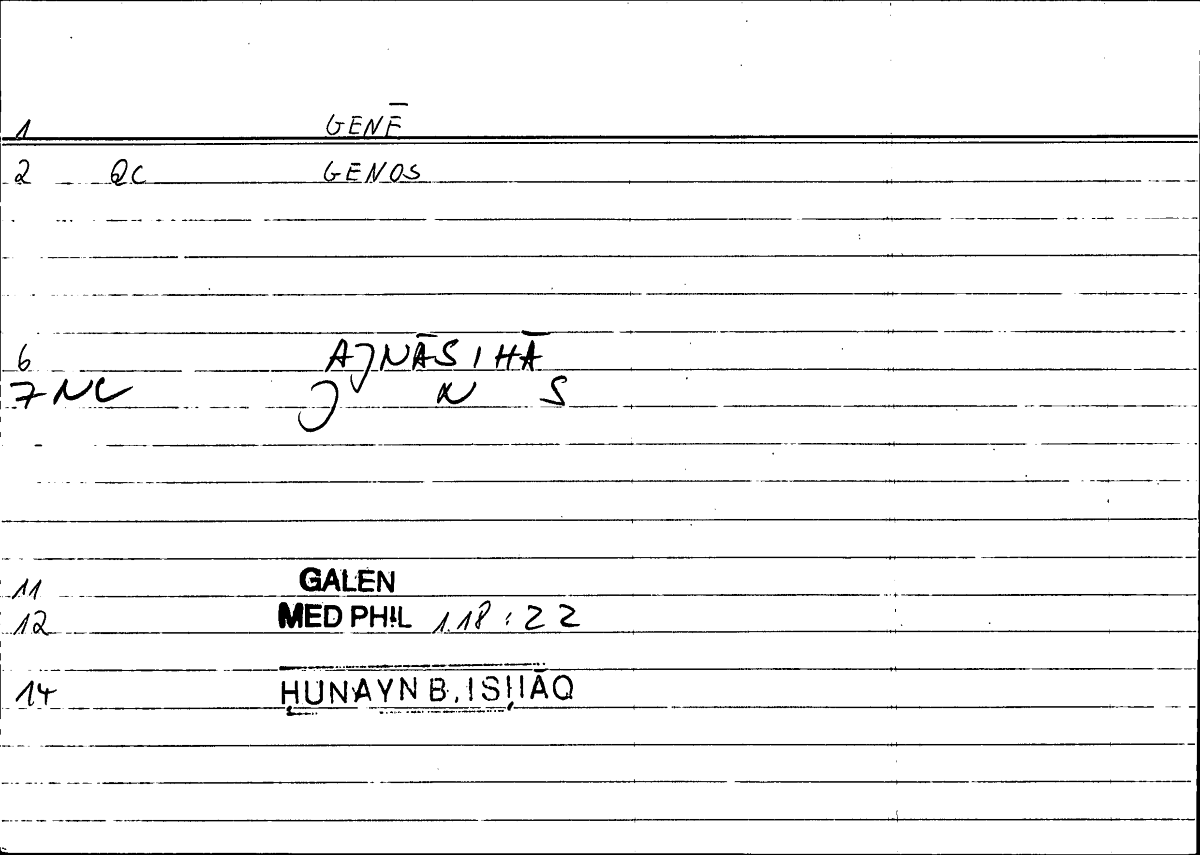 1 GENĒ
2 QC GENOS
6 AJNĀSIHĀ
7 NC J N S
11 GALEN
12 MED PHIL 1.18:22
14 ḤUNAYN B. ISḤĀQ